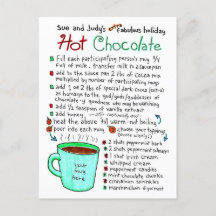 Sue and Judy's fabulous holiday
Hot Chocolate
fill each participating person's mug 3/4
full of milk, transfer milk to a saucepan
add to the sauce pan 2 tbs of cocoa mix
multiplied by number of participating mugs
add 1 oz of special dark cocoa (extra)
in homage to the god/gods/goddesses of
chocolate-y goodness who may be watching
add 1/2 teaspoon of vanilla extract
add honey, Splenda or nothing
heat the above 'til warm - not boiling
pour into each mug
choose your topping
2 shots peppermint bark
2 shots peppermint schnapps
1 shot irish cream
whipped cream
peppermint candies
mint chocolate chunks
cinnamon sprinkle
marshmallow garnish
your
mug
here